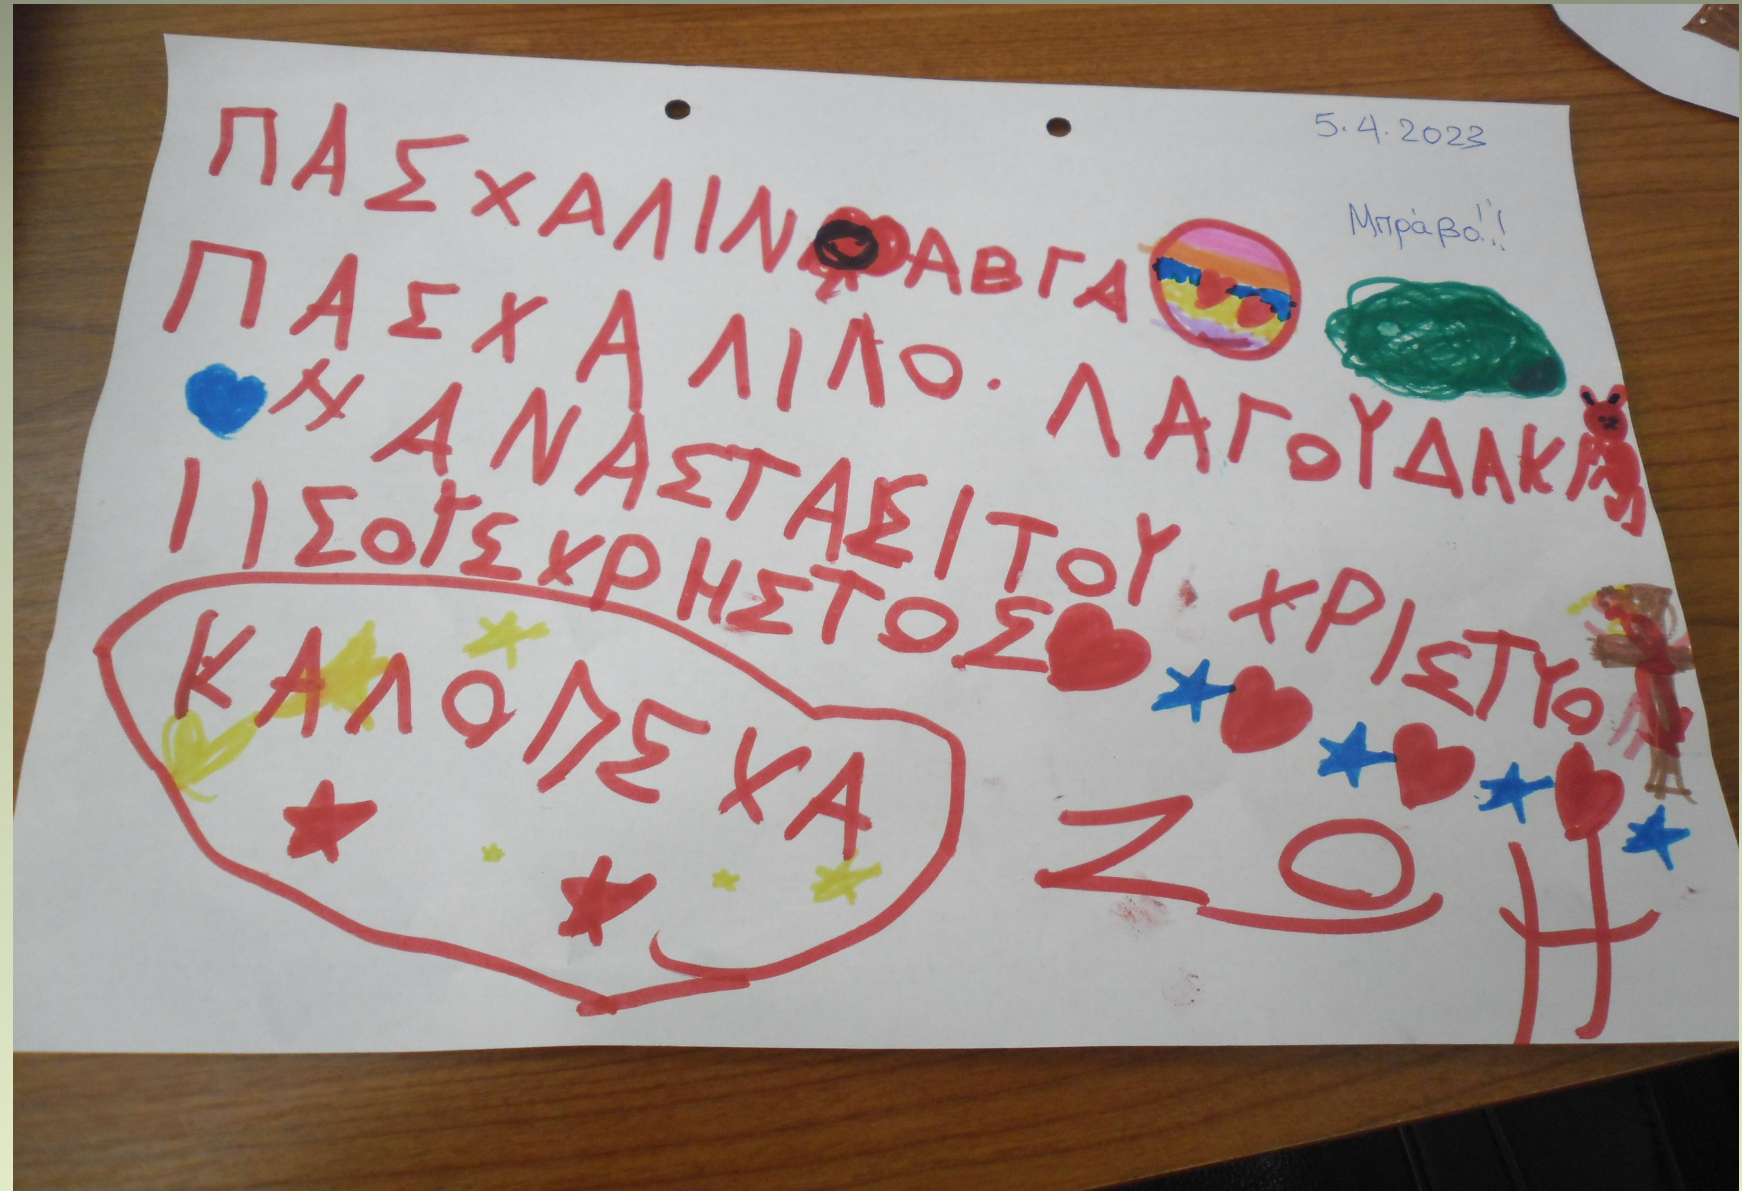 5.4.2023
Μπράβο!!!
ΠΑΣΧΑΛΙΝΑ ΑΒΓΑ
ΠΑΣΧΑΛΙΛΟ. ΛΑΓΟΥΔΑΚΙ
Η ΑΝΑΣΤΑΣΙ ΤΟΥ ΧΡΙΣΤΥΟ
ΙΙΣΟΥΣ ΧΡΗΣΤΟΣ
ΚΑΛΟ ΠΣΧΑ
ΖΟΗ